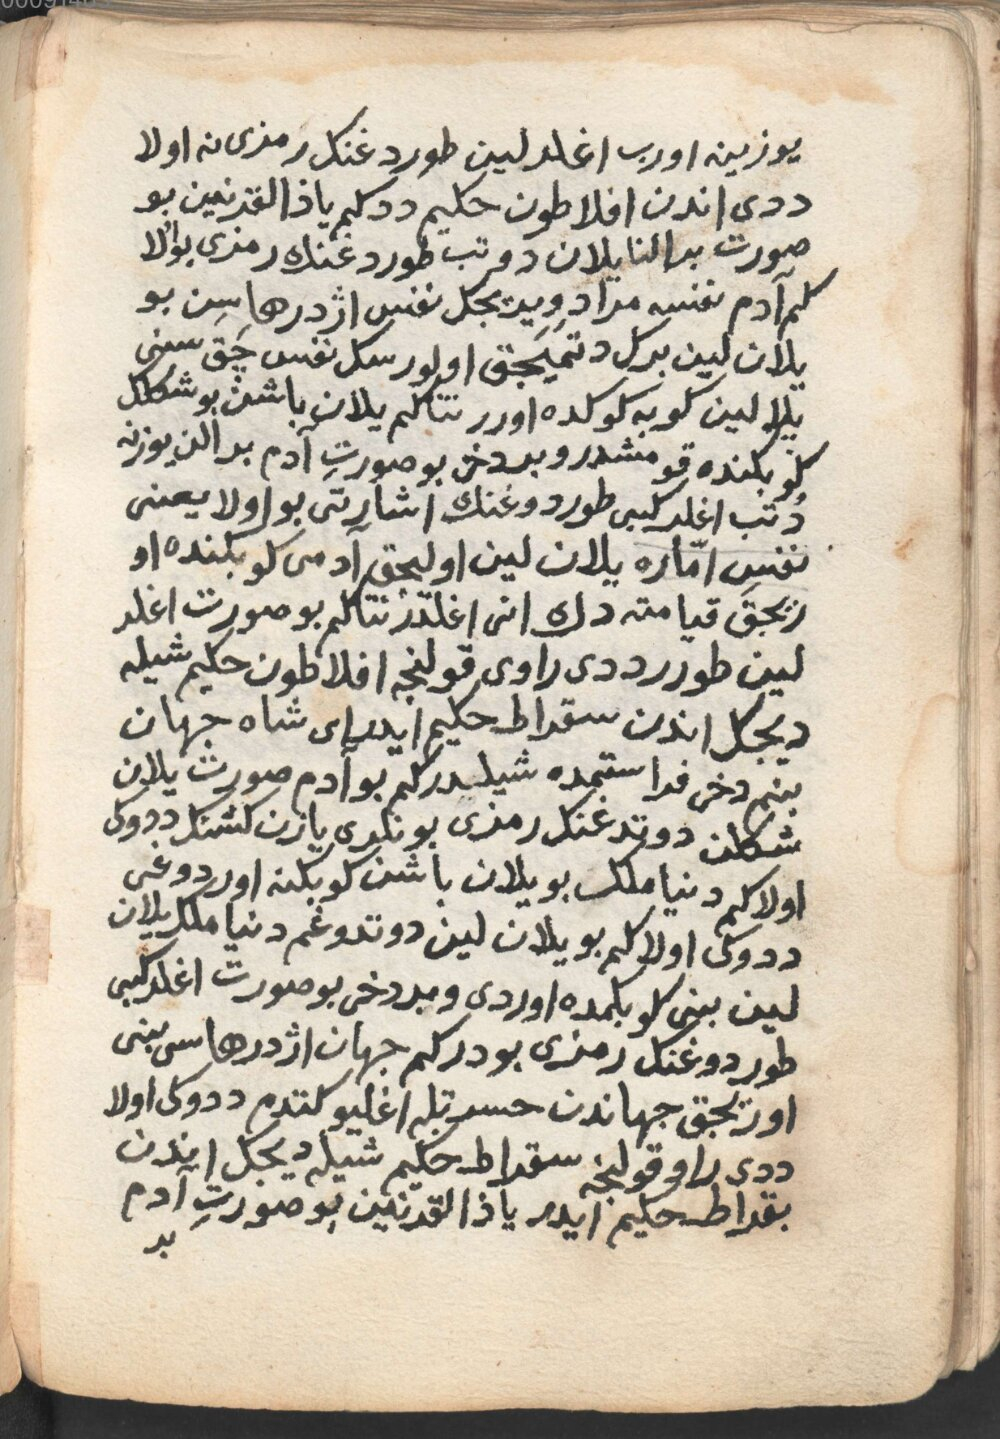 یوزینه اورب اغلدلین طوردغنك رمزی نه اولا
ددی اندن افلاطون حکیم ددکم یاذا القرنین بو
صورت بر النا یلان دوتب طوردغنك رمزی بو اولا
کم آدم نفسه مراد ویریجك نفس اژدرهاسن بو
یلان لین برك دتمیجق اولورسك نفس چق سنی
یلا لین کوبه کوکده اورر نتاکم یلان باشن بو شکلك
کوبکنده قومشدر و بر دخی بو صورت آدم بر الن یوزنه
دتب اغلر کبی طوردوغنك اشارتی بو اولا یعنی
نفس امّاره یلان لین اولیجق آدمی کوبکنده او
ریجق قیامته دك انی اغلدر نتاکم بو صورت اغلر
لین طورر ددی راوی قولنجه افلاطون حکیم شیله
دیجك اندن سقراط حکیم ایدر ای شاه جهان
بنم دخی فراستمده شیلدرکم بو آدم صورت یلان
شکلن دوتدغنك رمزی بونکری یازن کشنك ددوکی
اولاکم دنیا ملك بو یلان باشن کوبکنه اوردوغی
ددوکی اولاکم بو یلان لین دوتدوغم دنیا ملك یلان
لین بنی کوبکمده اوردی و بر دخی بو صورت اغلر کبی
طوردوغنك رمزی بودرکم جهان اژدرهاسی بنی
اوریجق جهاندن حسرتله اغلیو کتدم ددوکی اولا
ددی راو قولنجه سقراط حکیم شیله دیجك ایندن
بقراط حکیم ایدر یاذا القرنین بو صورت آدم
بر